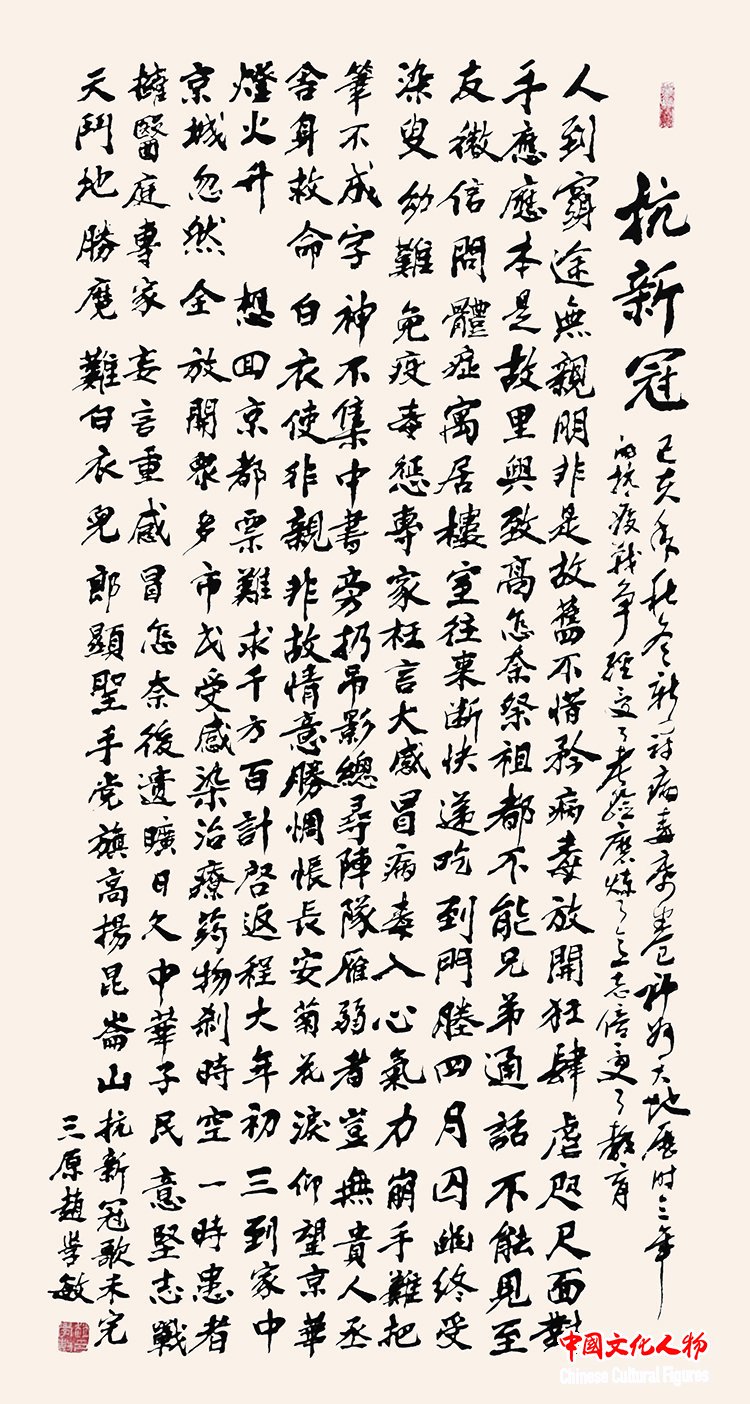 抗新冠
己亥年秋冬新冠病毒席卷神州大地历时三年
的抗疫戰争經受了考驗磨炼了意志倍受了教育
人到窮途無親朋非是故舊不惜矜病毒放開狂肆虐咫尺面對
手應應本是故里興致高怎奈祭祖都不能兄弟通話不能見至
友微信問體症寓居樓室往来断快递吃到門塍四月囚幽终受
染叟幼難免疫毒惩專家枉言大感冒病毒入心氣力崩手難把
筆不成字神不集中書旁扔吊影總尋陣隊雁弱者豈無貴人丞
舍身救命白衣使非親非故情意勝惆悵長安菊花淚仰望京華
燈火升想回京都票難求千方百計啓返程大年初三到家中
京城忽然全放開衆多市民受感染治療药物刹時空一時患者
擁醫庭專家妄言重感冒怎奈後遺曠日久中華子民意堅志戰
天鬥地勝魔難白衣兒郎顯聖手党旗高揚昆崙山
抗新冠歌未完
三原趙學敏
中國文化人物
Chinese Cultural Figures